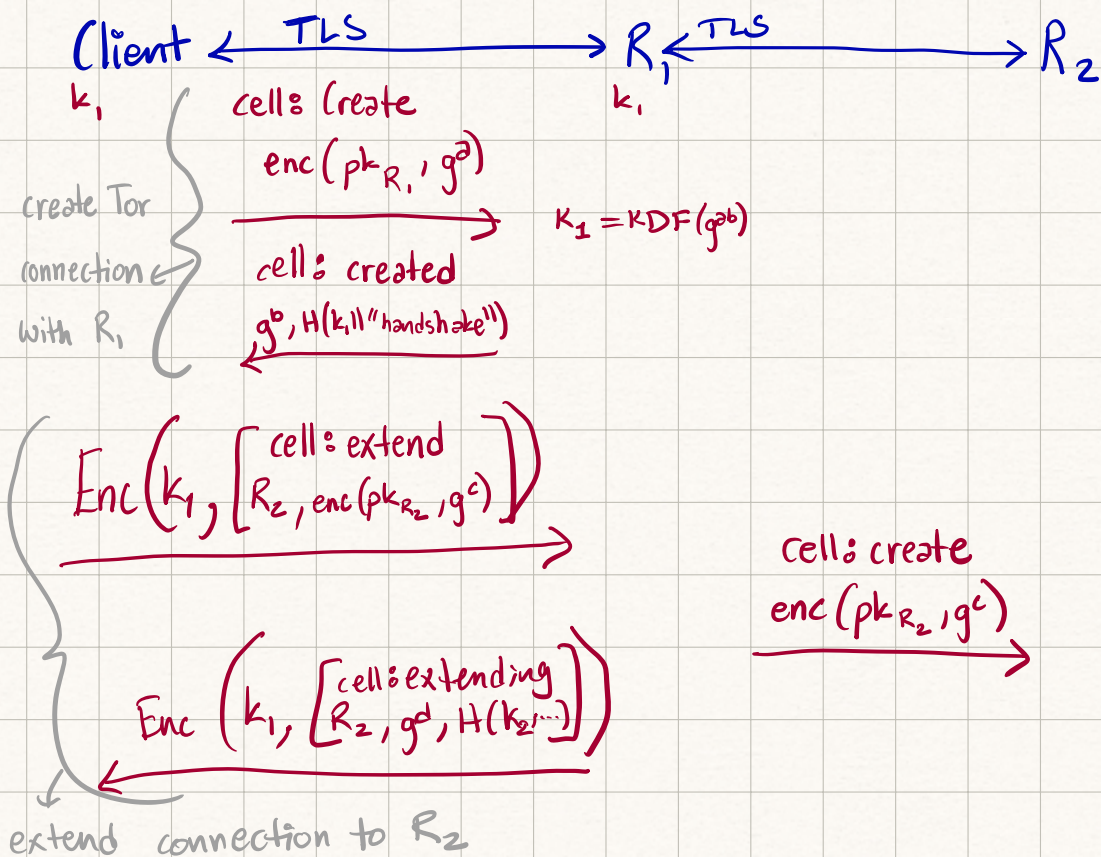 Client TLS R₁ TLS R₂
k₁ k₁
cell: Create
enc(pk_R₁, gᵃ)
create Tor
connection
with R₁
K₁ = KDF(gᵃᵇ)
cell: created
gᵇ, H(k₁||"handshake")
Enc(k₁, [cell: extend
R₂, enc(pk_R₂, gᶜ)])
cell: create
enc(pk_R₂, gᶜ)
Enc(k₁, [cell: extending
R₂, gᵈ, H(k₂, ...)])
extend connection to R₂